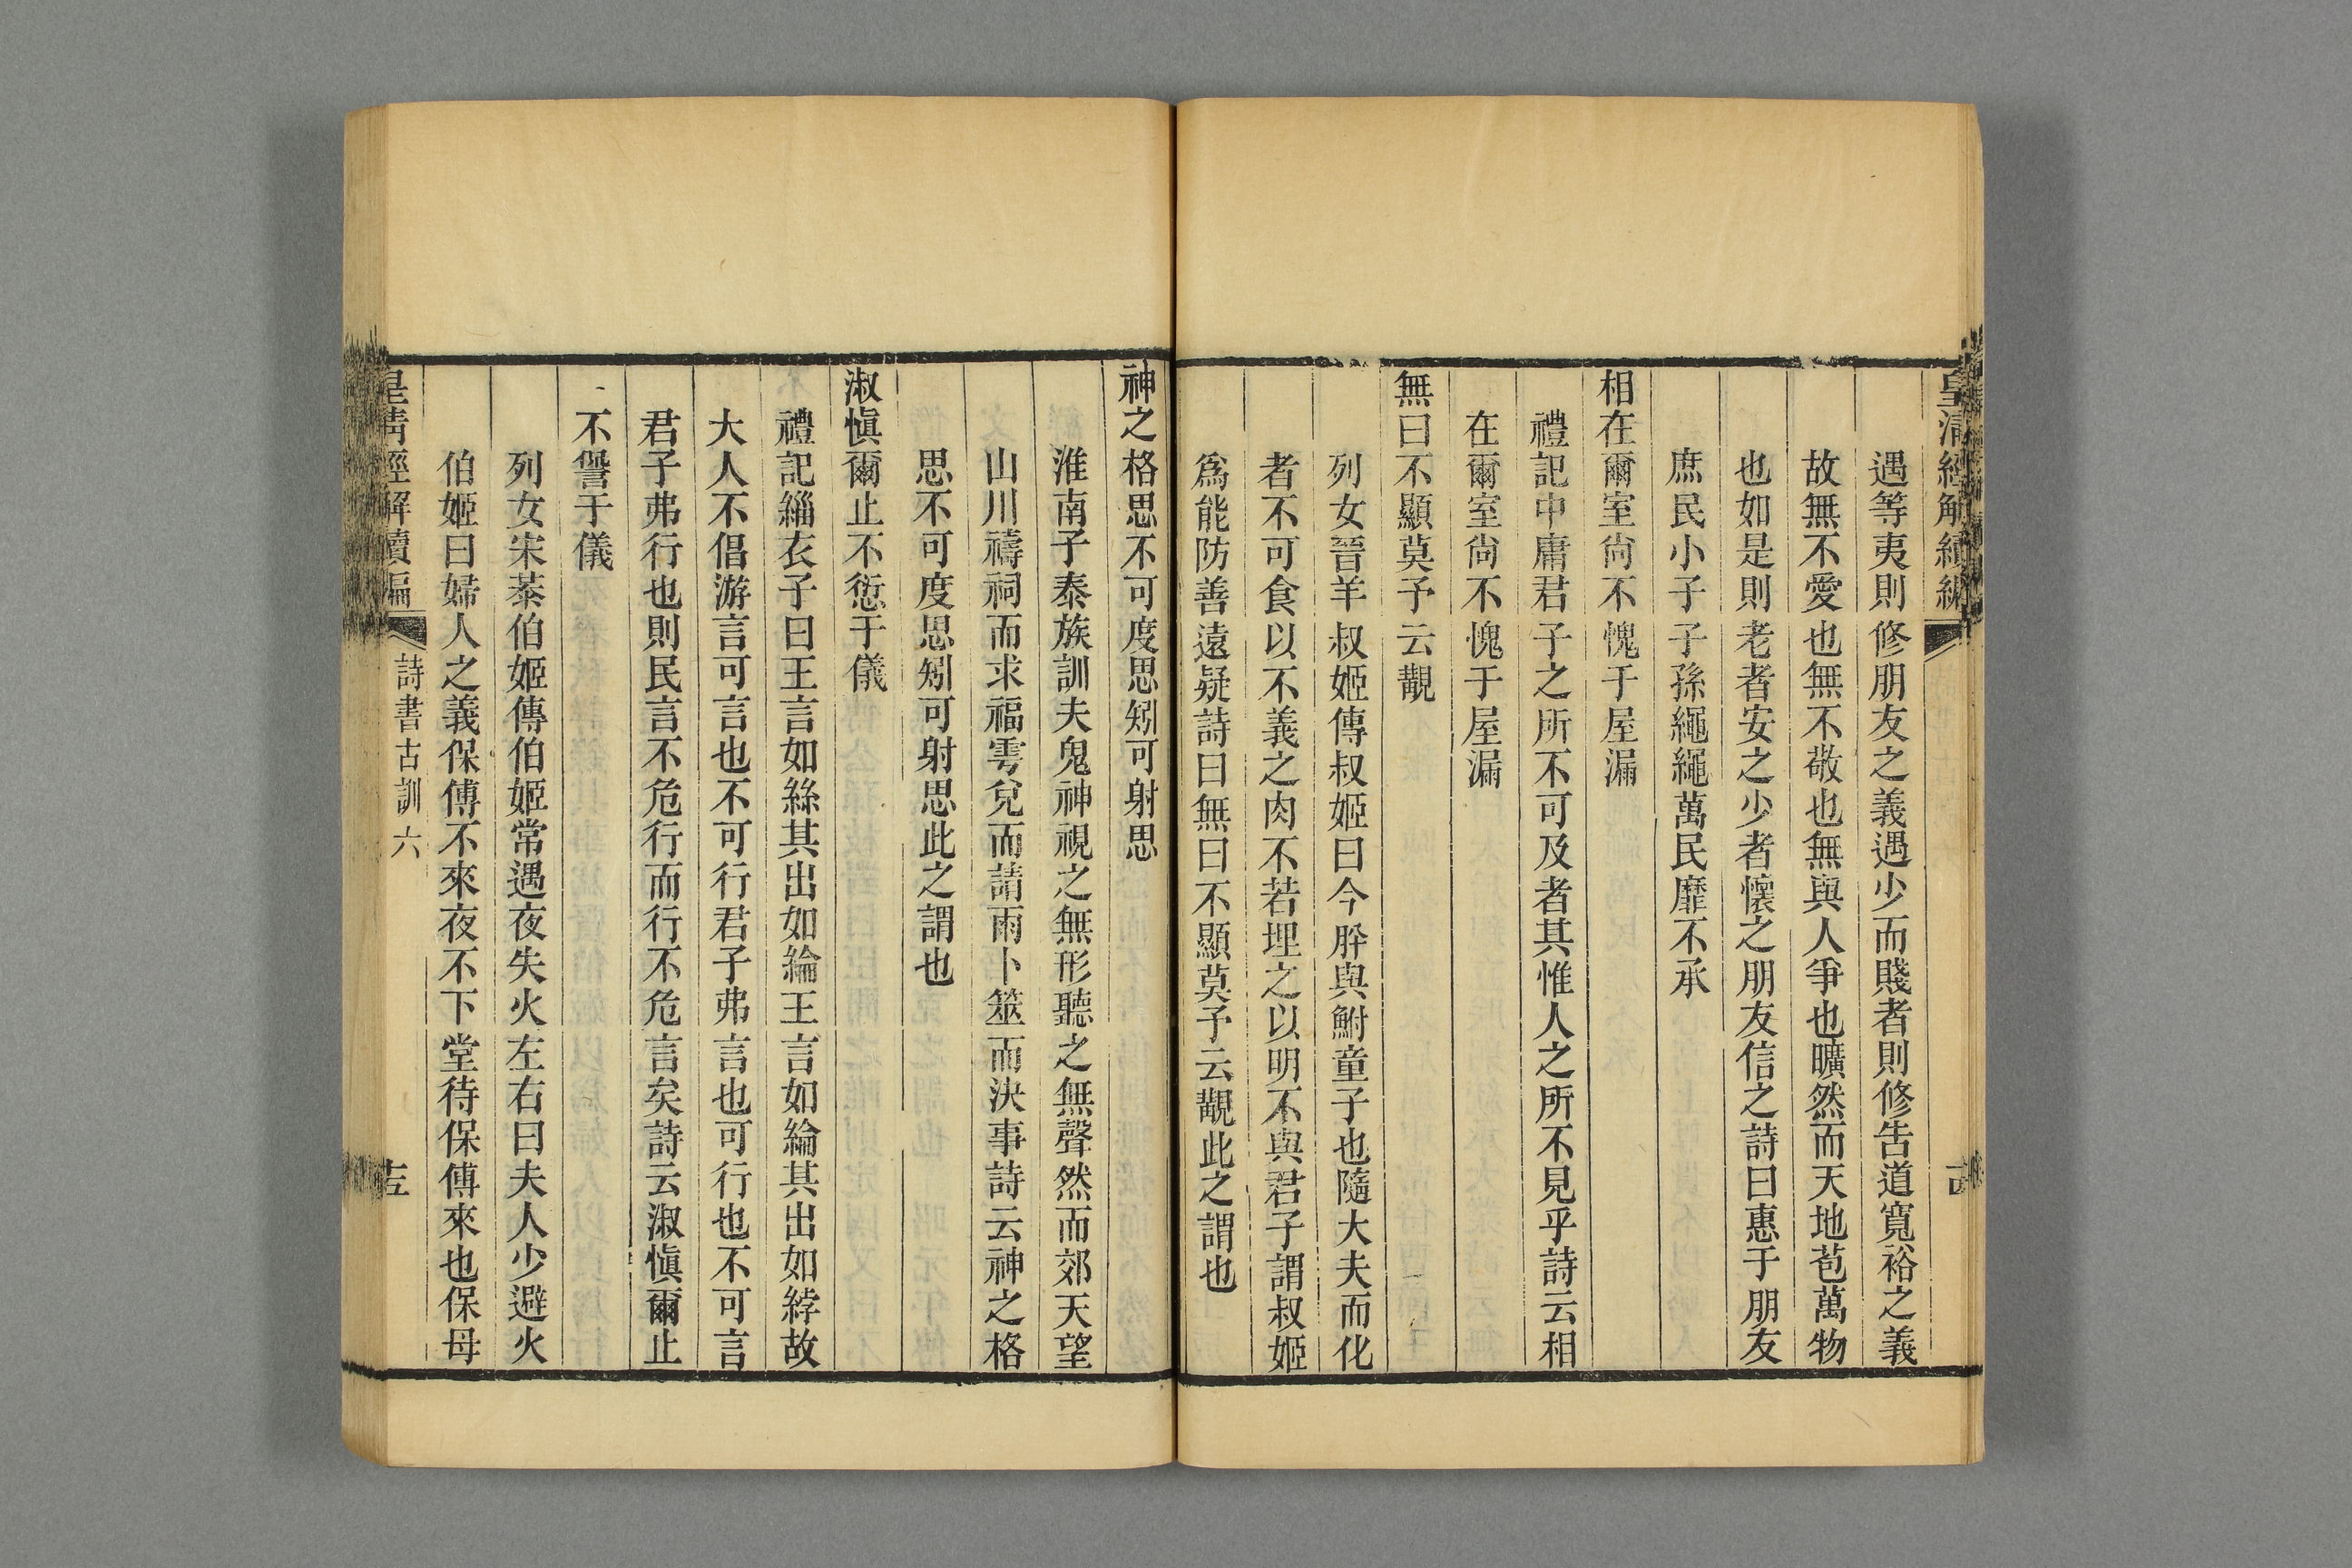 皇清經解續編
遇等夷則修朋友之義遇少而賤者則修告道寬裕之義
故無不愛也無不敬也無與人爭也曠然而天地苞萬物
也如是則老者安之少者懷之朋友信之詩曰惠于朋友
庶民小子子孫繩繩萬民靡不承
相在爾室尙不愧于屋漏
禮記中庸君子之所不可及者其惟人之所不見乎詩云相
在爾室尙不愧于屋漏
無曰不顯莫予云覯
列女晉羊叔姬傳叔姬曰今肸與鮒童子也隨大夫而化
者不可食以不義之肉不若埋之以明不與君子謂叔姬
爲能防善遠疑詩曰無曰不顯莫予云覯此之謂也
神之格思不可度思矧可射思
淮南子泰族訓夫鬼神視之無形聽之無聲然而郊天望
山川禱祠而求福雩兌而請雨卜筮而決事詩云神之格
思不可度思矧可射思此之謂也
淑愼爾止不愆于儀
禮記緇衣子曰王言如絲其出如綸王言如綸其出如綍故
大人不倡游言可言也不可行君子弗言也可行也不可言
君子弗行也則民言不危行而行不危言矣詩云淑愼爾止
不諐于儀
列女宋恭伯姬傳伯姬常遇夜失火左右曰夫人少避火
伯姬曰婦人之義保傅不來夜不下堂待保傅來也保母
皇淸經解續編 詩書古訓六 十五